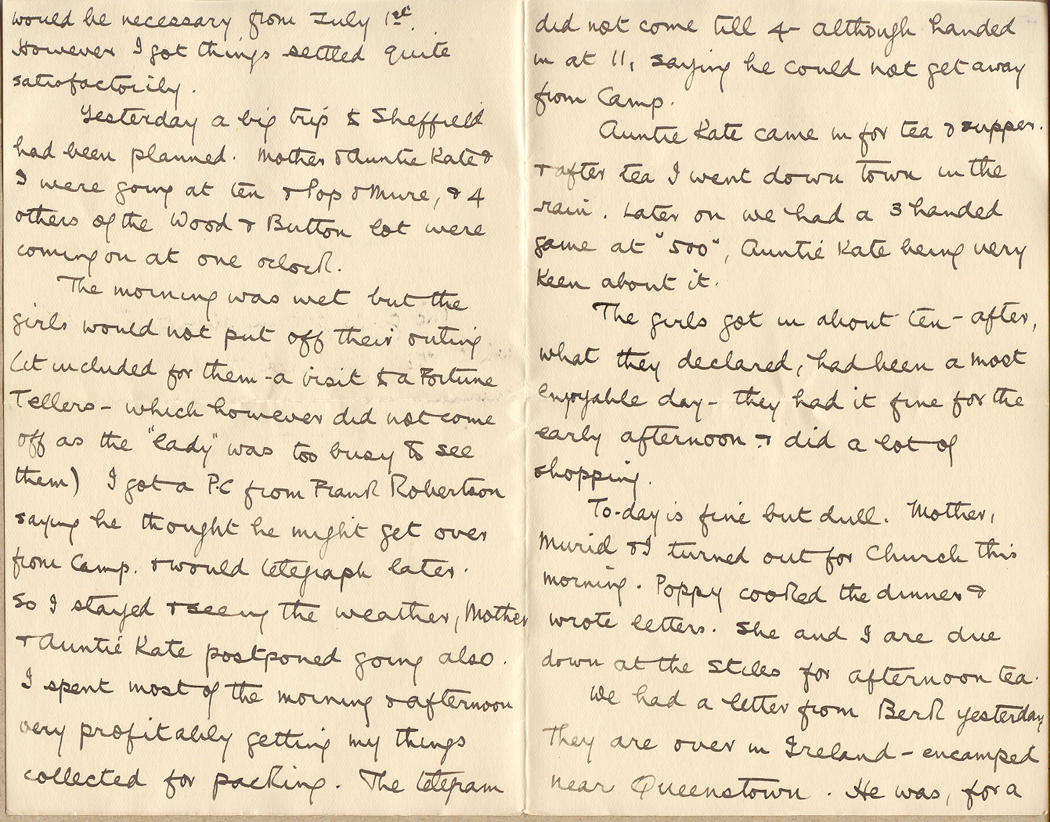 would be necessary from July 1st.
However I got things settled quite
satisfactorily.
Yesterday a big trip to Sheffield
had been planned. Mother & Auntie Kate &
I were going at ten & Pop & Mure, & 4
others of the Wood & Button lot were
coming on at one oclock.
The morning was wet but the
girls would not put off their outing
(it included for them - a visit to a Fortune
Tellers - which however did not come
off as the "lady" was too busy to see
them) I got a P.C from Frank Robertson
saying he thought he might get over
from Camp. & would telegraph later.
So I stayed & seeing the weather, Mother
& Auntie Kate postponed going also.
I spent most of the morning & afternoon
very profitably getting my things
collected for packing. The telegram
did not come till 4 - although handed
in at 11, saying he could not get away
from Camp.
Auntie Kate came in for tea & supper.
& after tea I went down town in the
rain. Later on we had a 3 handed
game at "500", Auntie Kate being very
keen about it.
The girls got in about ten - after,
what they declared, had been a most
enjoyable day - they had it fine for the
early afternoon & did a lot of
shopping.
To-day is fine but dull. Mother,
Muriel & I turned out for Church this
morning. Poppy cooked the dinner &
wrote letters. She and I are due
down at the Stiles for afternoon tea.
We had a letter from Berk yesterday
They are over in Ireland - encamped
near Queenstown. He was, for a